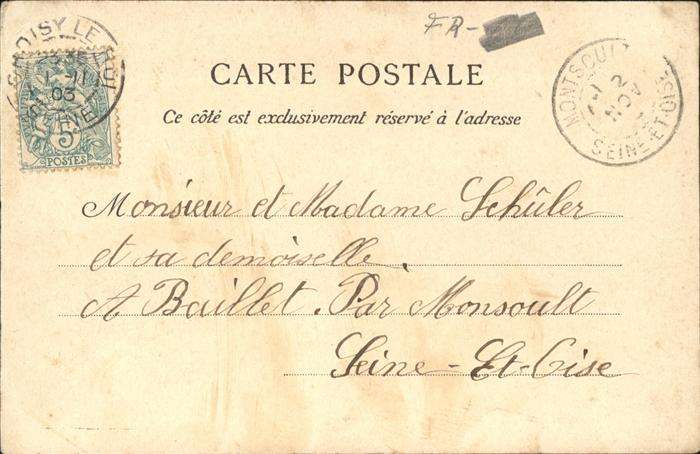 FR-
CHOISY LE ROI
11
03
SEINE
5
POSTES
CARTE POSTALE
Ce côté est exclusivement réservé à l'adresse
MONTSOU
2
NOV
SEINE-ET-OISE
Monsieur et Madame Schûler
et sa demoiselle.
A Baillet. Par Monsoult
Seine-Et-Oise